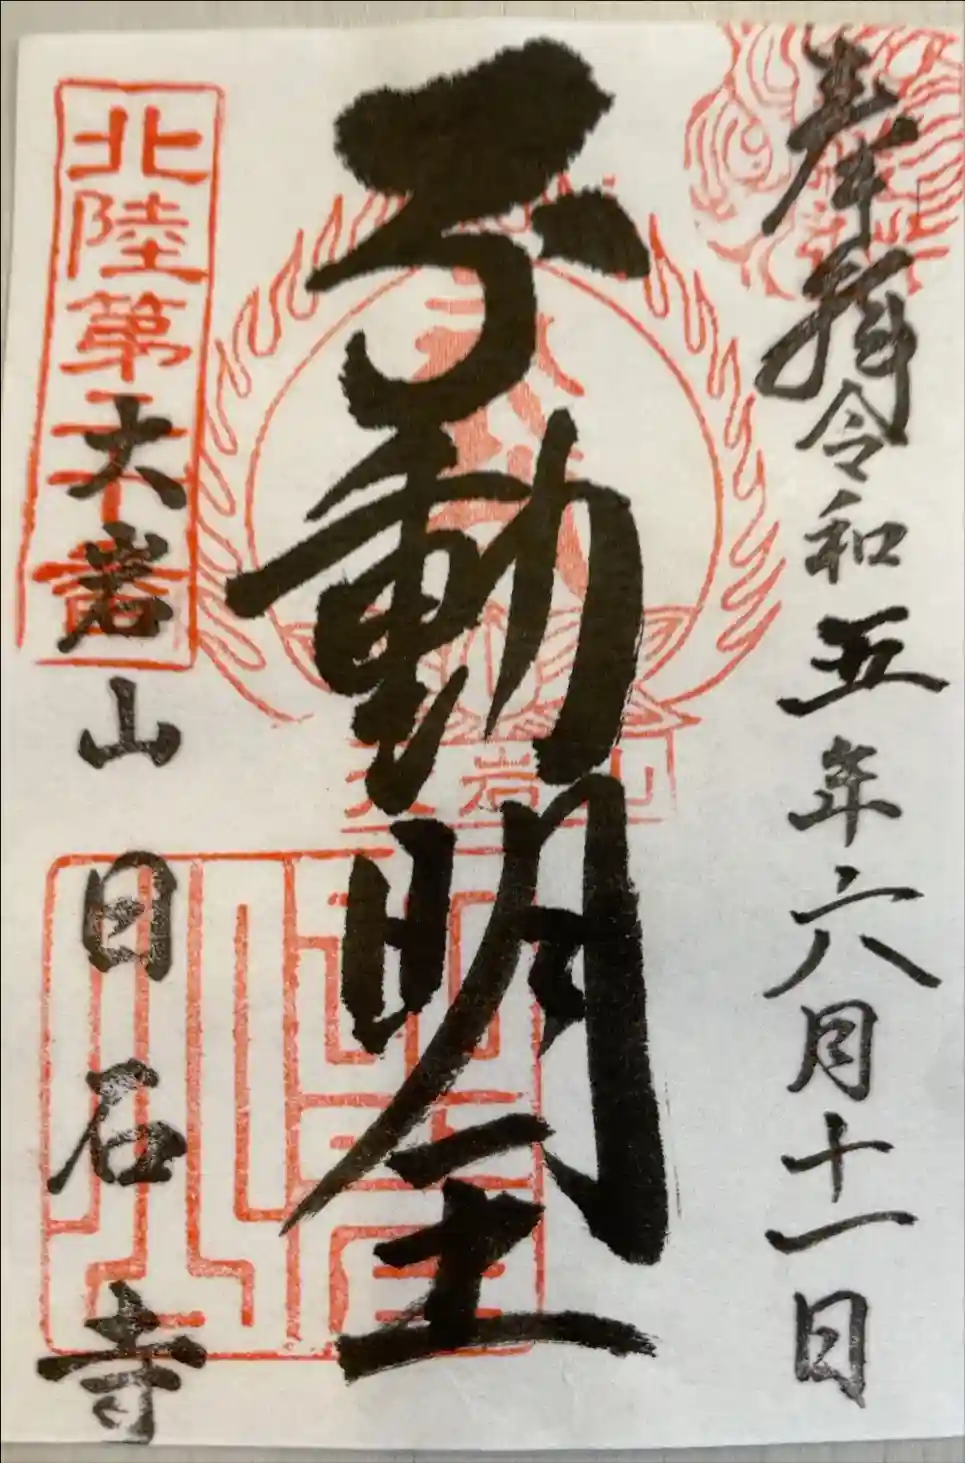 奉拝 令和五年六月十一日
不動明王
大岩山
北陸第
大岩山 日石寺